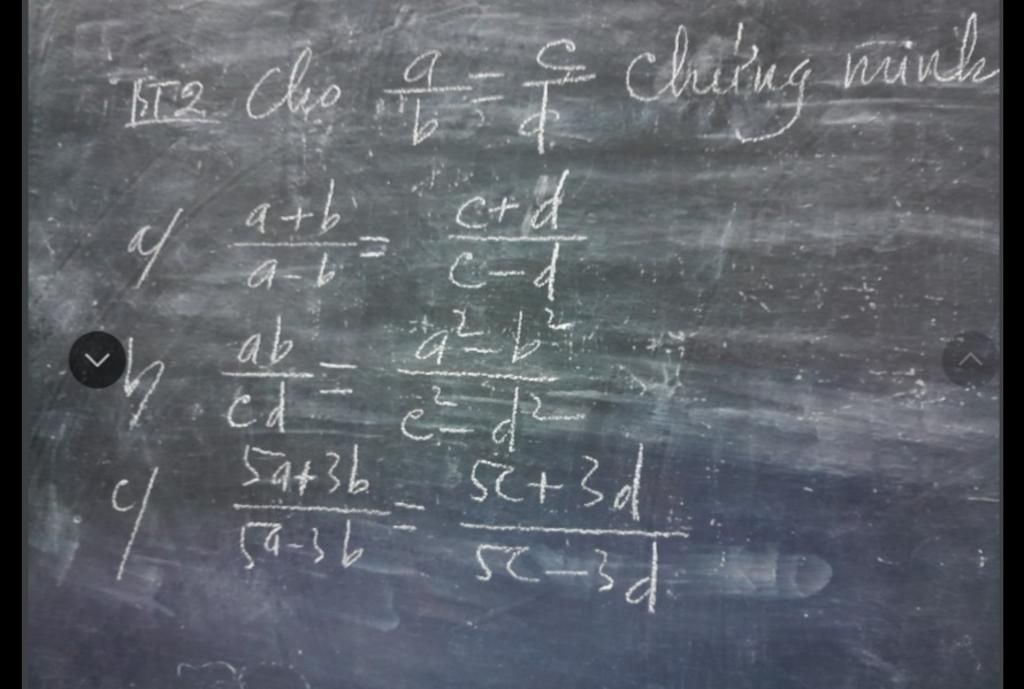 BT2 Cho a/b = c/d Chứng minh
a/ (a+b)/(a-b) = (c+d)/(c-d)
b/ ab/cd = (a²-b²)/(c²-d²)
c/ (5a+3b)/(5a-3b) = (5c+3d)/(5c-3d)